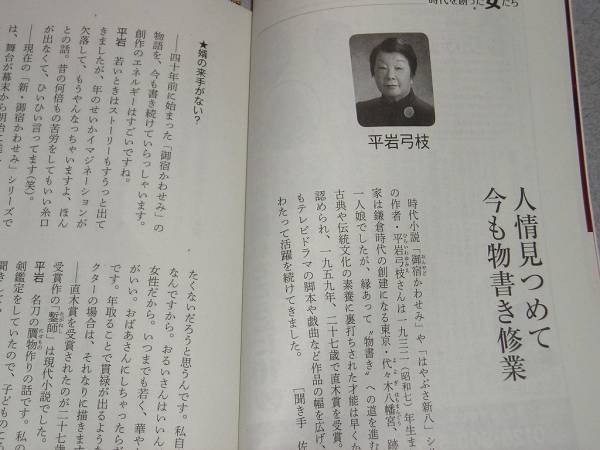 時代を創った女たち
平岩弓枝
人情見つめて
今も物書き修業
時代小説「御宿かわせみ」や「はやぶさ新八」シ
の作者・平岩弓枝さんは一九三二(昭和七)年生ま
家は鎌倉時代の創建になる東京・代々木八幡宮、跡
一人娘でしたが、縁あって〝物書き〟への道を進む
古典や伝統文化の素養に裏打ちされた才能は早くか
認められ、一九五九年、二十七歳で直木賞を受賞。
もテレビドラマの脚本や戯曲など作品の幅を広げ、
わたって活躍を続けてきました。
[聞き手 佐
★婿の来手がない?
――四十年前に始まった「御宿かわせみ」の
物語を、今も書き続けていらっしゃいます。
創作のエネルギーはすごいですね。
平岩 若いときはストーリーもすうっと出て
きましたが、年のせいかイマジネーションが
欠落して、もうやんなっちゃいますよ、ほん
との話。昔の何倍もの苦労をしてもいい糸口
が出なくて、ひいひい言ってます(笑)。
――現在の「新・御宿かわせみ」シリーズで
は、舞台が幕末から明治に
たくないだろうと思うんです。私自
なんですから。おるいさんはいいん
女性だから。いつまでも若く、華や
がいい。おばあさんにしちゃったらが
です。年取ることで貫禄が出るような
クターの場合は、それなりに描きます
――直木賞を受賞されたのが二十七歳
受賞作の「鏨師」は現代小説でした。
平岩 名刀の贋物作りの話です。私の
剣鑑定をしていたので、子どものころ